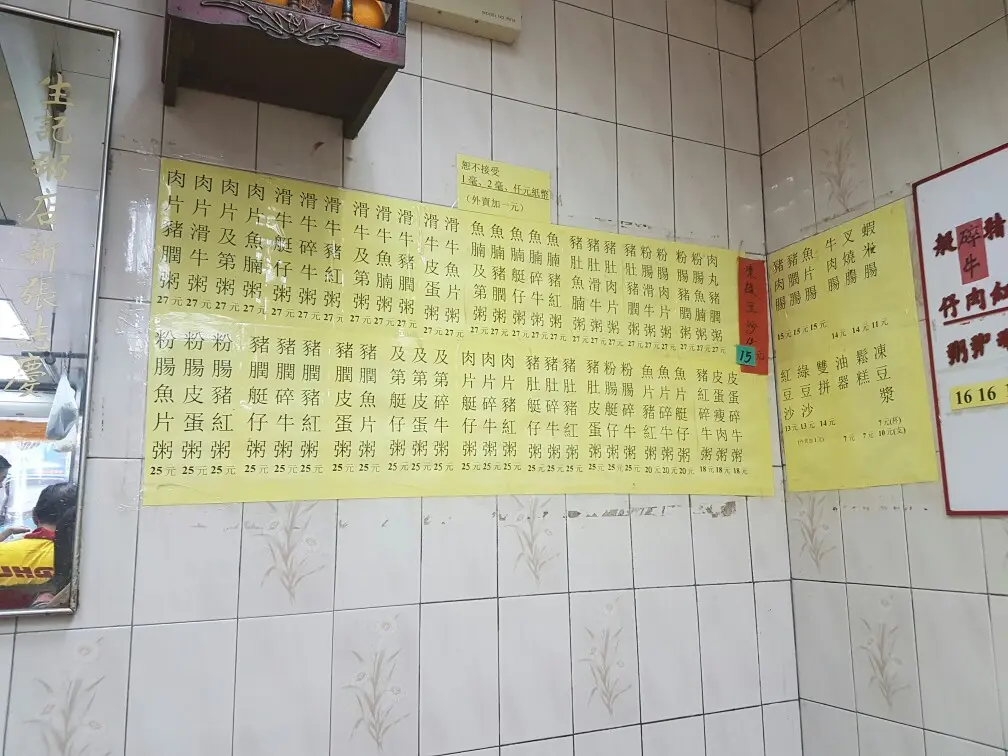 生記粥店新張誌慶
恕不接受
1毫、2毫、仟元紙幣
(外賣加一元)
肉片豬膶粥 27元
肉片滑牛粥 27元
肉片及第粥 27元
肉片魚腩粥 27元
滑牛艇仔粥 27元
滑牛碎牛粥 27元
滑牛豬紅粥 27元
滑牛及第粥 27元
滑牛魚腩粥 27元
滑牛豬膶粥 27元
滑牛皮蛋粥 27元
滑牛魚片粥 27元
魚腩及第粥 27元
魚腩豬膶粥 27元
魚腩艇仔粥 27元
魚腩碎牛粥 27元
魚腩豬紅粥 27元
豬肚魚腩粥 27元
豬肚滑牛粥 27元
豬肚肉片粥 27元
豬肚豬膶粥 27元
粉腸滑牛粥 27元
粉腸肉片粥 27元
粉腸豬膶粥 27元
粉腸魚腩粥 27元
肉丸豬膶粥 27元
粉腸魚片粥 25元
粉腸皮蛋粥 25元
粉腸豬紅粥 25元
豬膶艇仔粥 25元
豬膶碎牛粥 25元
豬膶豬紅粥 25元
豬膶皮蛋粥 25元
豬膶魚片粥 25元
及第艇仔粥 25元
及第皮蛋粥 25元
及第碎牛粥 25元
肉片艇仔粥 25元
肉片碎牛粥 25元
肉片豬紅粥 25元
豬肚艇仔粥 25元
豬肚碎牛粥 25元
豬肚豬紅粥 25元
豬肚皮蛋粥 25元
粉腸艇仔粥 25元
粉腸碎牛粥 25元
魚片豬紅粥 20元
魚片碎牛粥 20元
魚片艇仔粥 20元
豬皮碎牛粥 18元
皮蛋瘦肉粥 18元
皮蛋碎牛粥 18元
豆沙
15元
豬肉腸 15元
豬膶腸 15元
魚片腸 15元
牛肉腸 14元
叉燒腸 14元
蝦米腸 11元
紅豆沙 13元
綠豆沙 13元
雙拼 14元
油器 7元
鬆糕 7元
凍豆漿 7元(杯) 10元(支)
艇仔粥 16
碎牛肉粥 16
豬紅
DHL